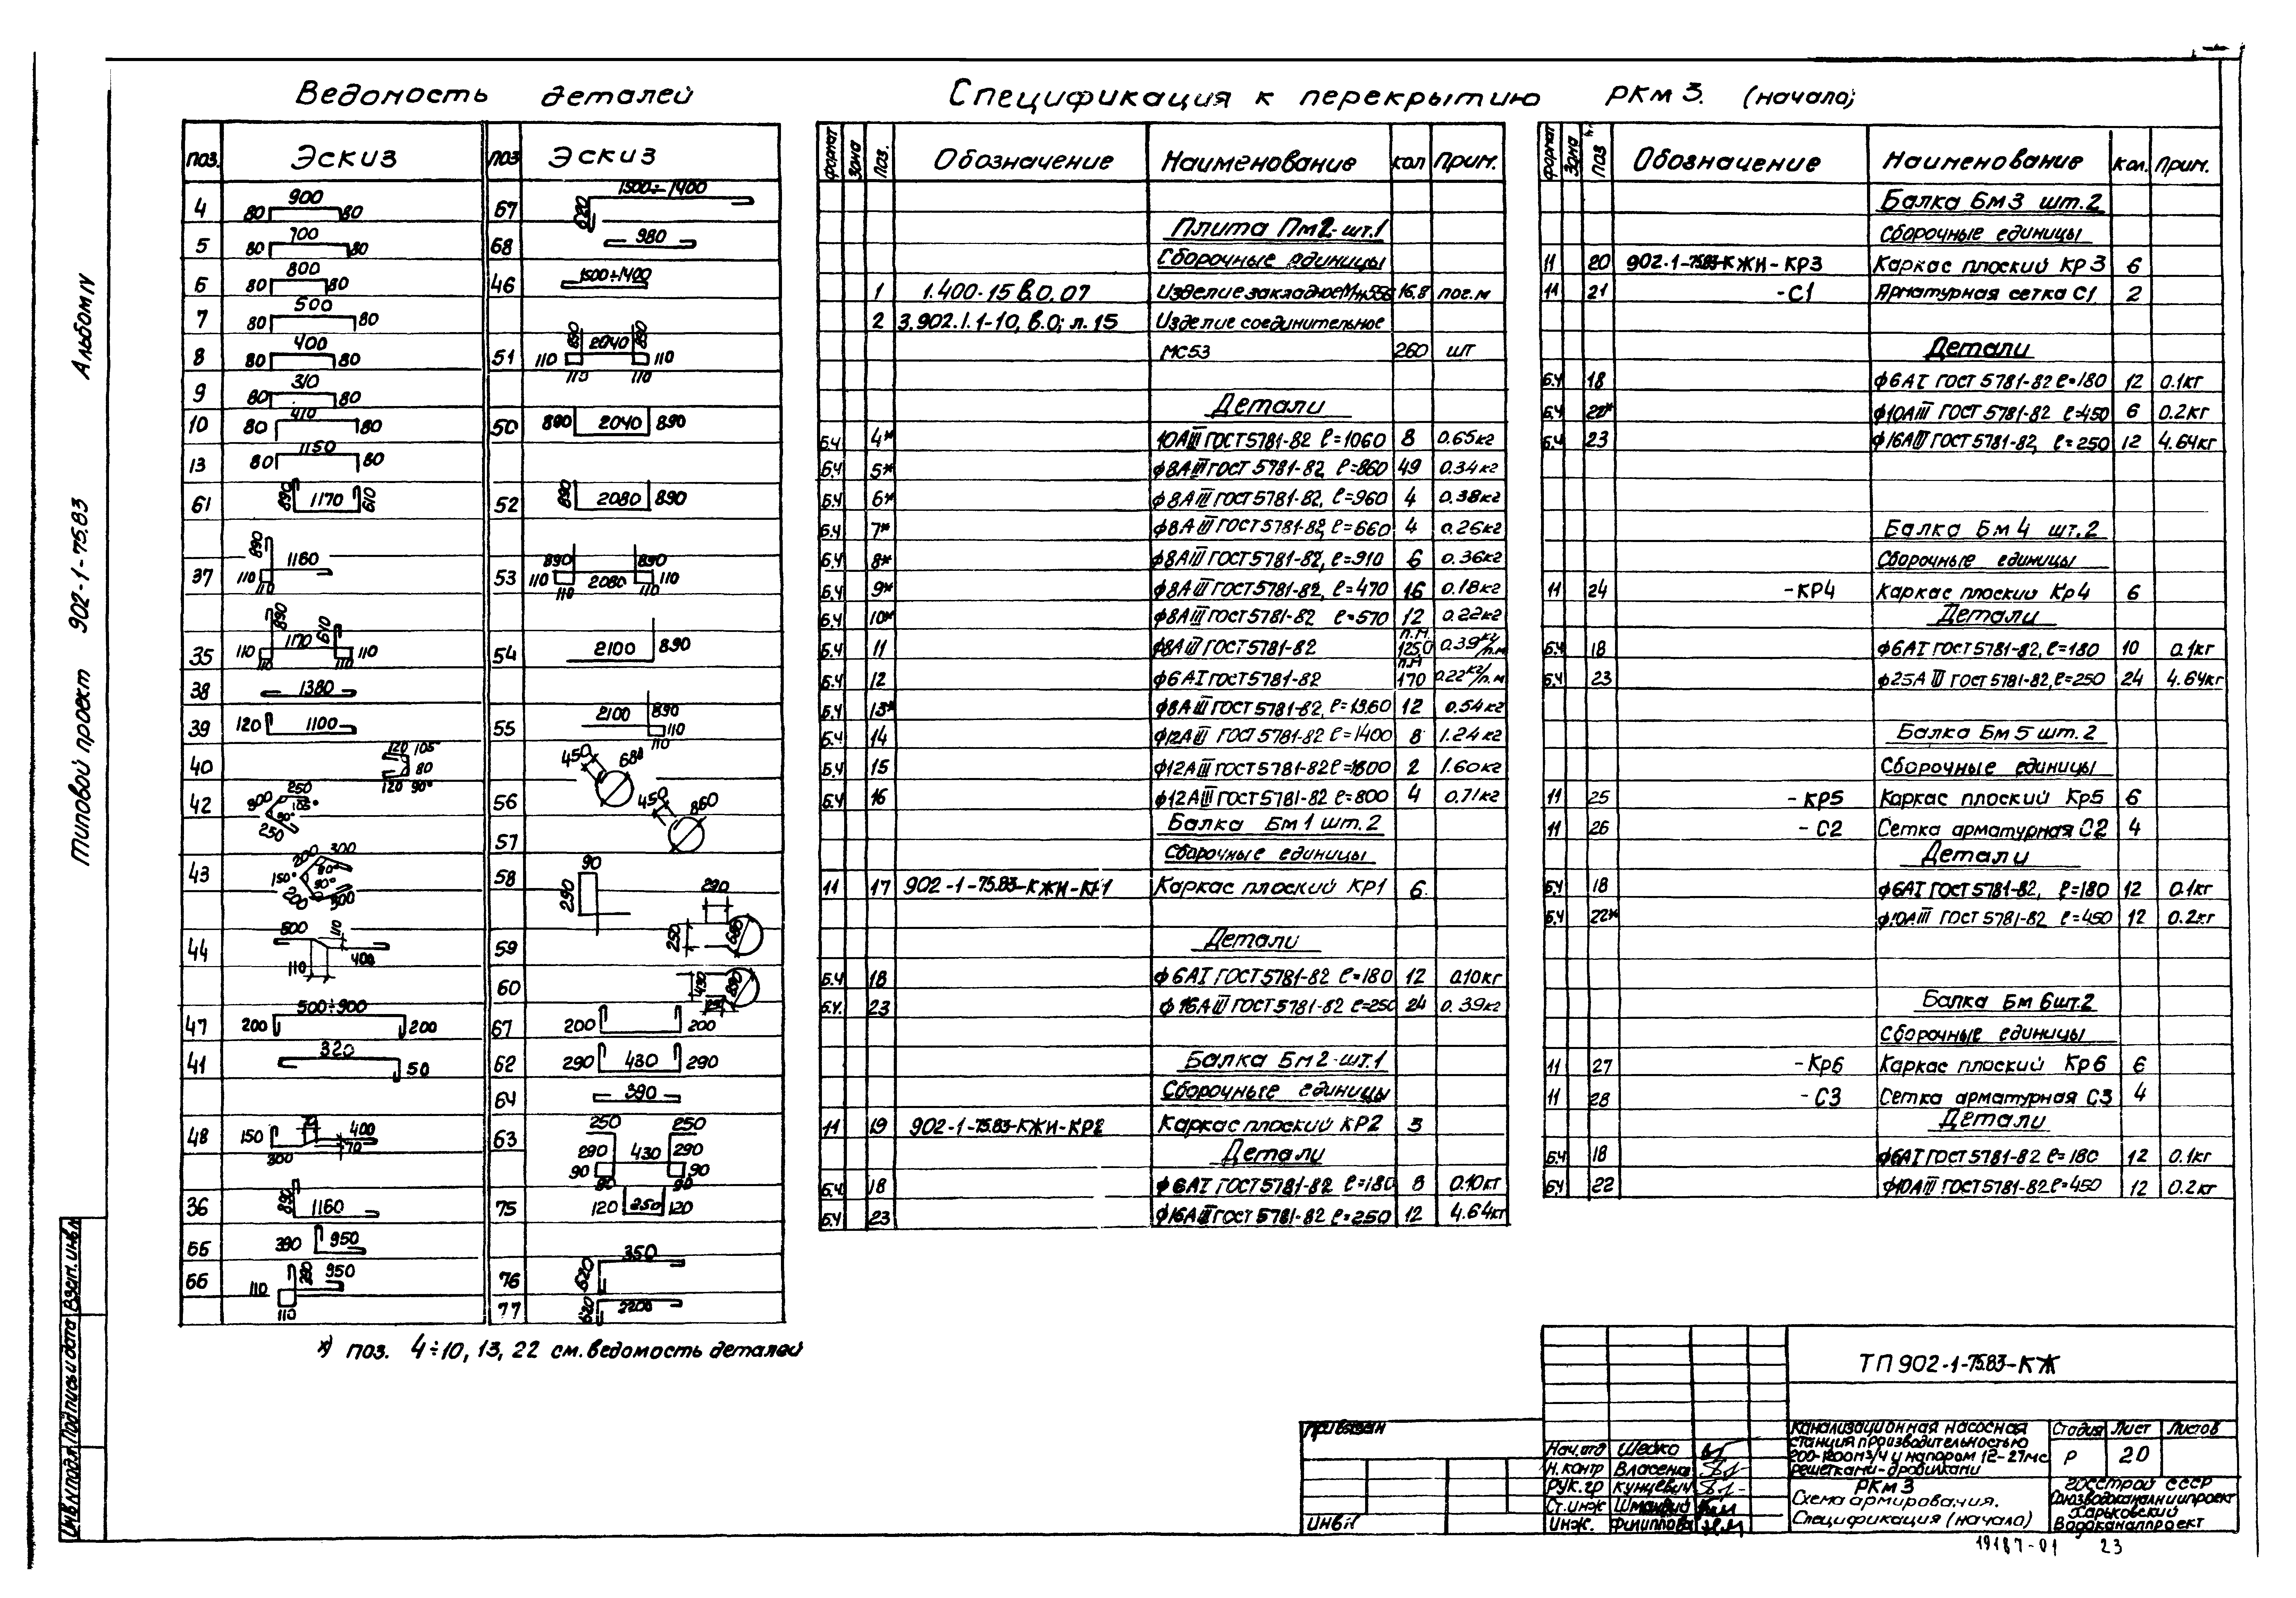 Ведомость деталей
Спецификация к перекрытию РКм 3. (начало)
Типовой проект 902-1-75.83 Альбом IV
поз. Эскиз поз Эскиз
4 80 900 80
5 80 700 80
6 80 800 80
7 80 500 80
8 80 400 80
9 80 310 80
10 80 410 80
13 80 1150 80
61 890 1170 610
37 890 1160 110 110
35 890 1170 610 110 110 110 110
38 1380
39 120 1100
40 120 105° 80 120 90°
42 300 250 105° 90° 250
43 200 300 90° 150° 90° 200 300
44 500 110 110 400
47 200 500÷900 200
41 320 50
48 150 300 400 70
36 890 1160
65 390 950
66 110 290 950 110
67 1500÷1400
68 980
46 1500÷1400
51 890 2040 890 110 110 110 110
50 890 2040 890
52 890 2080 890
53 890 890 110 2080 110 110 110
54 2100 890
55 2100 890 110 110
56 450 680
57 450 860
58 90 290
59 290 250 680
60 430 890
67 200 200
62 290 430 290
64 390
63 250 250 290 430 290 90 90 90 90
75 120 250 120
76 350 620
77 620 2200
*) поз. 4÷10, 13, 22 см. ведомость деталей
формат зона поз. Обозначение Наименование кол Прим.
Плита Пм2-шт.1
Сборочные единицы
1 1.400-15 В.0.07 Изделие закладное 16,8 пог.м
2 3.902.1.1-10, в.0; л.15 Изделие соединительное
МС53 260 шт
Детали
Б.Ч 4* 10АIII ГОСТ 5781-82 ℓ=1060 8 0.65кг
Б.Ч 5* ф8АIII ГОСТ 5781-82, ℓ=860 49 0.34кг
Б.Ч 6* ф8АIII ГОСТ 5781-82, ℓ=960 4 0.38кг
Б.Ч 7* ф8АIII ГОСТ 5781-82, ℓ=660 4 0.26кг
Б.Ч 8* ф8АIII ГОСТ 5781-82, ℓ=910 6 0.36кг
Б.Ч 9* ф8АIII ГОСТ 5781-82, ℓ=470 16 0.18кг
Б.Ч 10* ф8АIII ГОСТ 5781-82 ℓ=570 12 0.22кг
Б.Ч 11 ф8АIII ГОСТ 5781-82 п.м. 125,0 0.39кг/п.м
Б.Ч 12 ф6АI ГОСТ 5781-82 п.м 170 0.22кг/п.м
Б.Ч 13* ф8АIII ГОСТ 5781-82, ℓ=1360 12 0.54кг
Б.Ч 14 ф12АIII ГОСТ 5781-82 ℓ=1400 8 1.24кг
Б.Ч 15 ф12АIII ГОСТ 5781-82 ℓ=1800 2 1.60кг
Б.Ч 16 ф12АIII ГОСТ 5781-82 ℓ=800 4 0.71кг
Балка Бм 1 шт. 2
Сборочные единицы
11 17 902-1-75.83-КЖИ-КР1 Каркас плоский КР1 6
Детали
Б.Ч 18 ф6АI ГОСТ 5781-82 ℓ=180 12 0.10кг
Б.Ч. 23 ф16АIII ГОСТ 5781-82 ℓ=250 24 0.39кг
Балка Бм 2-шт.1
Сборочные единицы
11 19 902-1-75.83-КЖИ-КР2 Каркас плоский КР2 3
Детали
Б.Ч 18 ф6АI ГОСТ 5781-82 ℓ=180 8 0.10кг
Б.Ч 23 ф16АIII ГОСТ 5781-82 ℓ=250 12 4.64кг
формат Зона поз Обозначение Наименование кол. Прим.
Балка Бм 3 шт.2
Сборочные единицы
11 20 902-1-75.83-КЖИ-КР3 Каркас плоский КР3 6
11 21 -С1 Арматурная сетка С1 2
Детали
Б.Ч 18 ф6АI ГОСТ 5781-82 ℓ=180 12 0.1кг
Б.Ч 22* ф10АIII ГОСТ 5781-82 ℓ=450 6 0.2кг
Б.Ч 23 ф16АIII ГОСТ 5781-82, ℓ=250 12 4.64кг
Балка Бм 4 шт.2
Сборочные единицы
11 24 -КР4 Каркас плоский Кр4 6
Детали
Б.Ч 18 ф6АI ГОСТ 5781-82, ℓ=180 10 0.1кг
Б.Ч 23 ф25АIII ГОСТ 5781-82, ℓ=250 24 4.64кг
Балка Бм 5 шт.2
Сборочные единицы
11 25 -КР5 Каркас плоский Кр5 6
11 26 -С2 Сетка арматурная С2 4
Детали
Б.Ч 18 ф6АI ГОСТ 5781-82, ℓ=180 12 0.1кг
Б.Ч 22* ф10АIII ГОСТ 5781-82 ℓ=450 12 0.2кг
Балка Бм 6 шт.2
Сборочные единицы
11 27 -Кр6 Каркас плоский Кр6 6
11 28 -С3 Сетка арматурная С3 4
Детали
Б.Ч 18 ф6АI ГОСТ 5781-82 ℓ=180 12 0.1кг
Б.Ч 22 ф10АIII ГОСТ 5781-82 ℓ=450 12 0.2кг
ТП 902-1-75.83-КЖ
Привязан
Инв.№
Нач.отд Шейко
Н.контр Власенко
Рук.гр Кунцевич
Ст.инж
Инж. Филиппова
Канализационная насосная
станция производительностью
200-1200м3/ч и напором 12-27м с
решетками-дробилками
Стадия Лист Листов
Р 20
РКм 3
Схема армирования.
Спецификация (начало)
Госстрой СССР
Союзводоканалниипроект
Харьковский
Водоканалпроект
19187-01 23
Инв.№подл. Подпись и дата Взам.инв.№